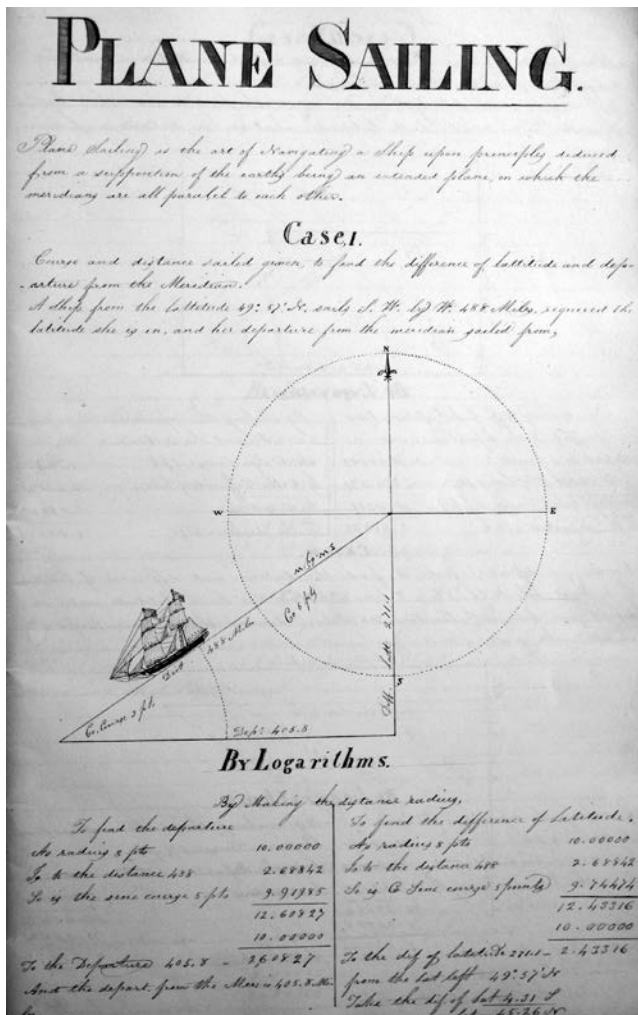 PLANE SAILING.
Plane Sailing is the art of Navigating a Ship upon principles deduced
from a supposition of the earths being an extended plane, in which the
meridians are all parallel to each other.
Case, 1.
Course and distance sailed given, to find the difference of lattitude and depa-
-arture from the Meridian.
A ship from the lattitude 49°. 57' N. sails S. W. by W. 488 Miles, required the
latitude she is in, and her departure from the meridian sailed from,
N
W
E
Co 5 pts
488 Miles
Dist
Diff. Latt. 271.1
S
Co. Course 3 pts
Dep. 405.8
By Logarithms.
By Making the distance radius.
To find the departure
As radius 8 pts 10.00000
Is to the distance 488 2.68842
So is the sine course 5 pts 9.91985
12.60827
10.00000
To the Departure 405.8 - 2.60827
And the depart. from the Meri is 405.8 Mi
To find the difference of Latitude.
As radius 8 pts 10.00000
Is to the distance 488 2.68842
So is Co Sine course 5 points 9.74474
12.43316
10.00000
To the dif of latitude 271.1 - 2.43316
from the lat left 49°. 57' N
Take the dif of lat 4.31 S
45.26 N